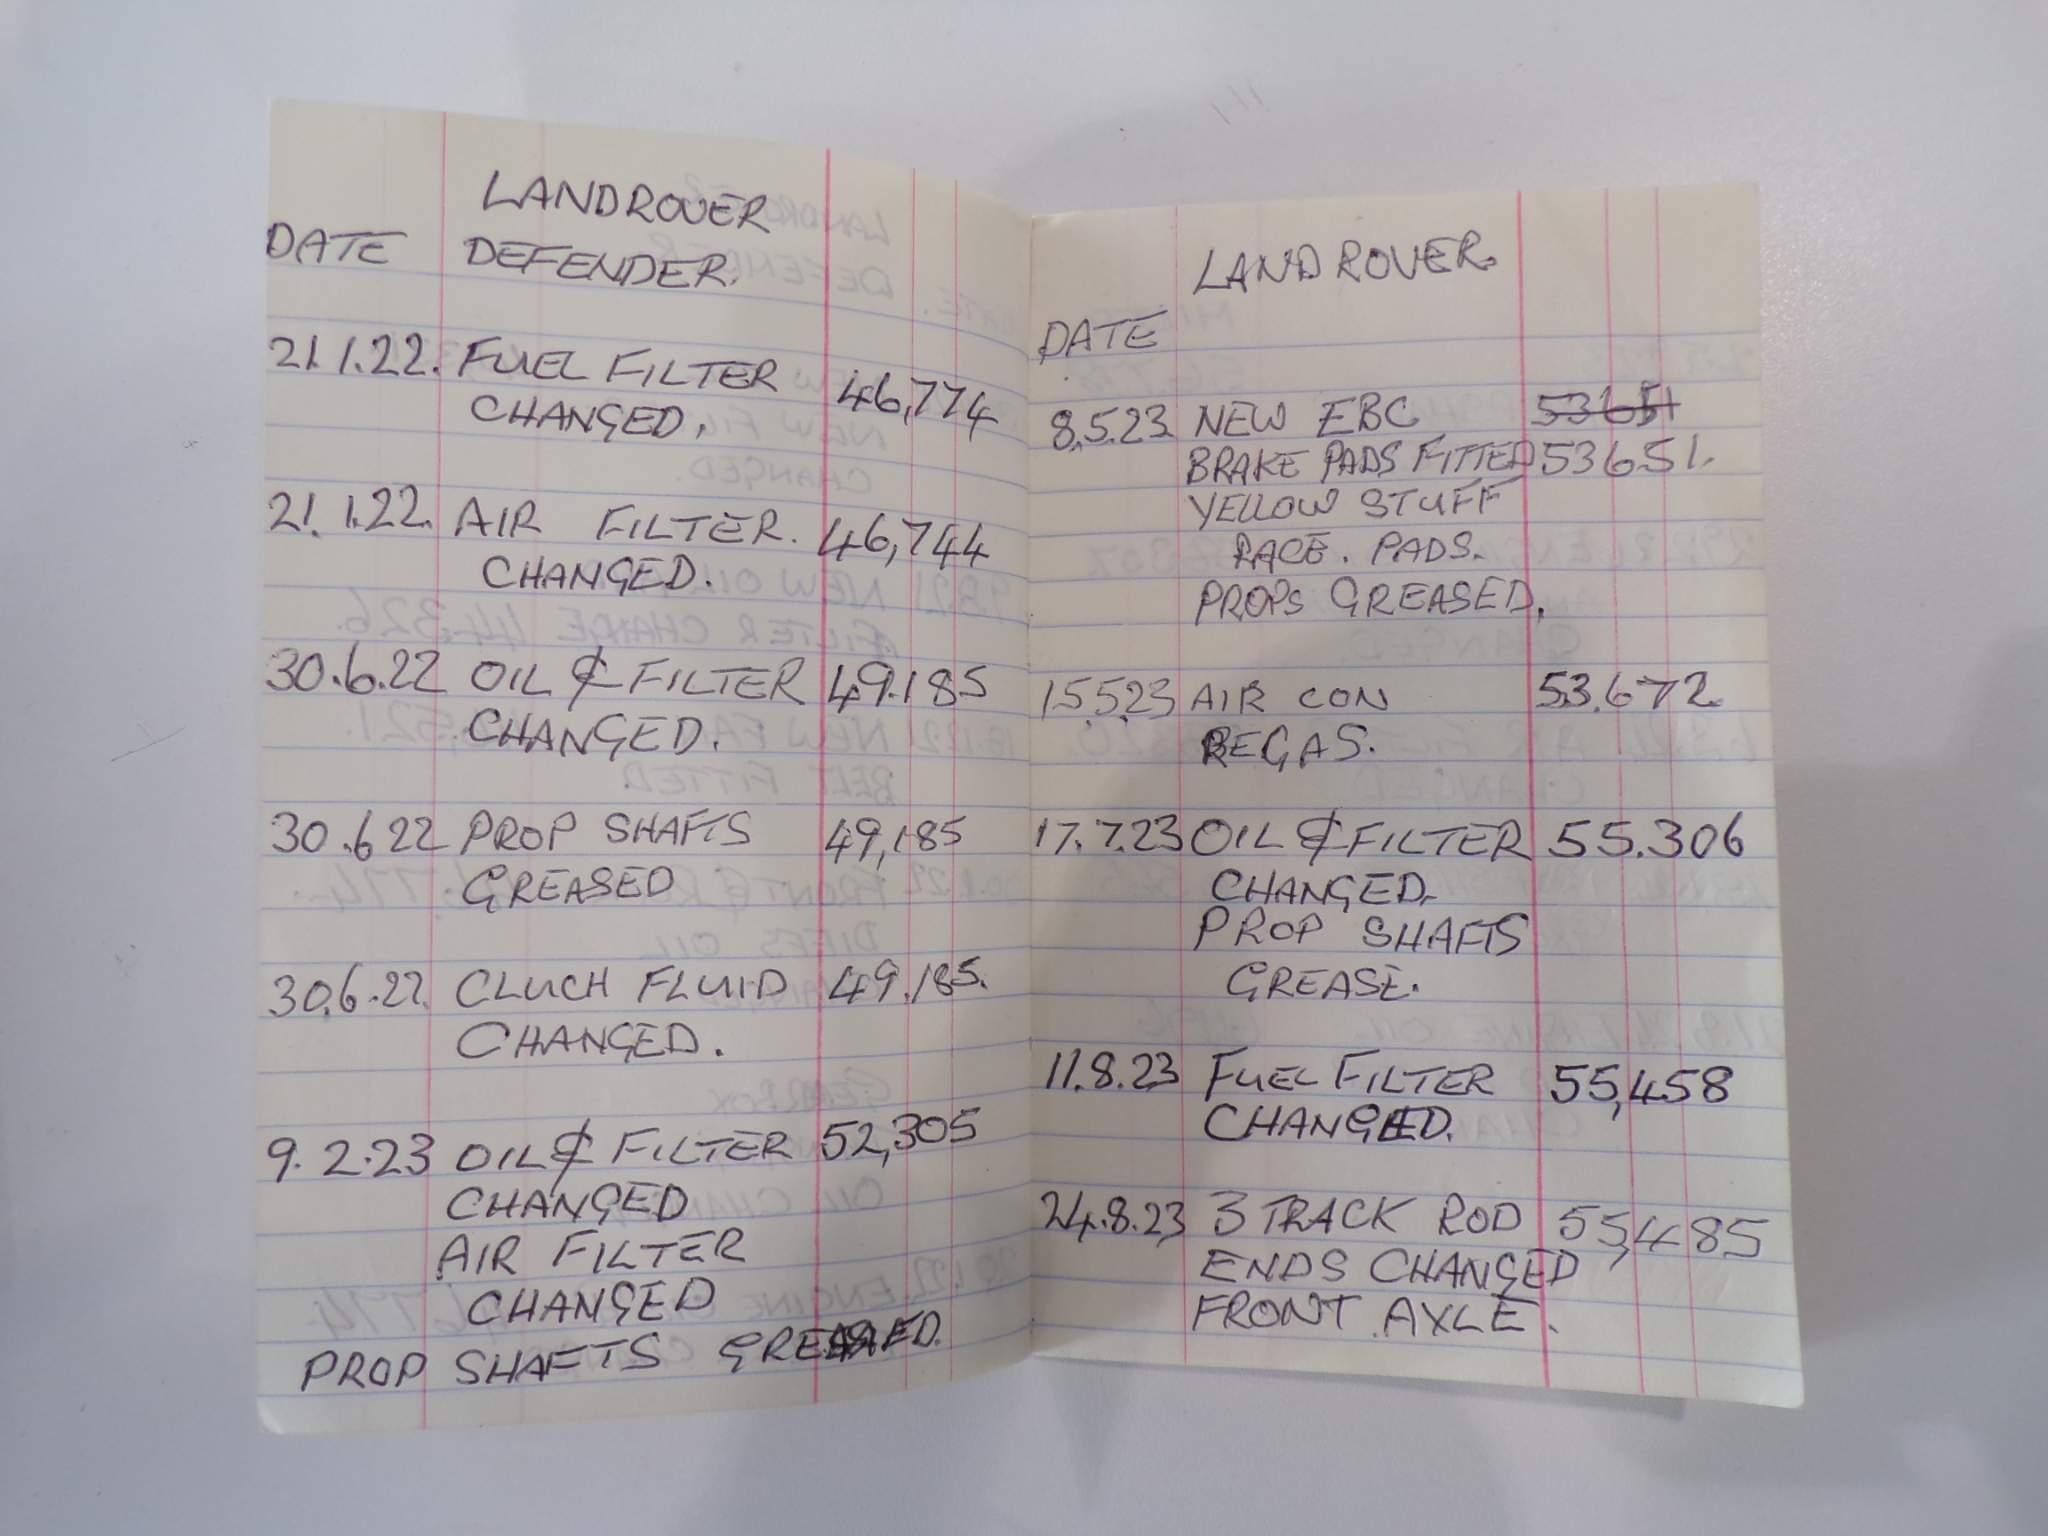 LANDROVER
DATE DEFENDER.
21.1.22. FUEL FILTER 46,774
CHANGED.
21.1.22. AIR FILTER. 46,744
CHANGED.
30.6.22 OIL & FILTER 49.185
CHANGED.
30.6 22 PROP SHAFTS 49,185
GREASED
30.6.22. CLUCH FLUID 49.185.
CHANGED.
9.2.23 OIL & FILTER 52,305
CHANGED
AIR FILTER
CHANGED
PROP SHAFTS GREASED.
LANDROVER.
DATE
8.5.23 NEW EBC 53651
BRAKE PADS FITTED 53651.
YELLOW STUFF
RACE. PADS.
PROPS GREASED.
15.5.23 AIR CON 53.672
REGAS.
17.7.23 OIL & FILTER 55.306
CHANGED.
PROP SHAFTS
GREASE.
11.8.23 FUEL FILTER 55,458
CHANGED.
24.8.23 3 TRACK ROD 55,485
ENDS CHANGED
FRONT AXLE.